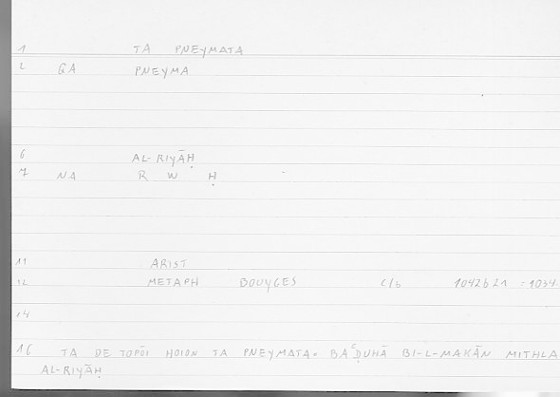 1 TA PNEYMATA
2 GA PNEYMA
6 AL-RIYĀḤ
7 NA R W Ḥ
11 ARIST
12 METAPH BOUYGES C/b 1042b21 = 1034.
14
16 TA DE TOPŌI HOION TA PNEYMATA. BAʿḌUHĀ BI-L-MAKĀN MITHLA
AL-RIYĀḤ